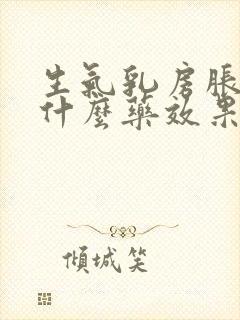 生氣乳房脹
什麼藥效果
傾城笑